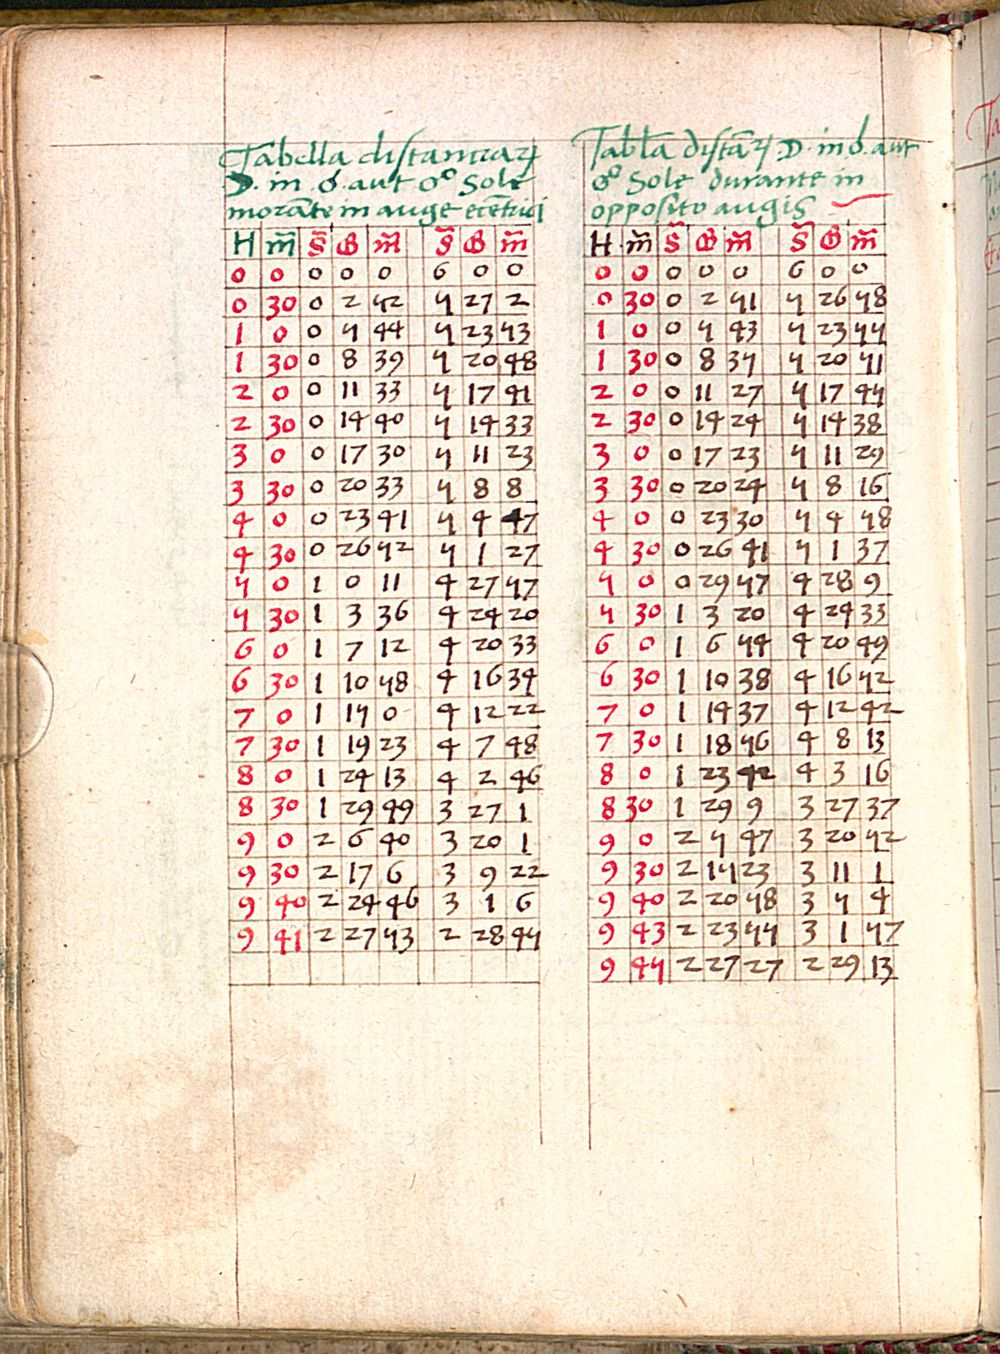 Tabella distantiarꝝ
☽. in ☌. aut ☍ Sole
morãte in auge ecẽtrici
H m̃ s̃ G m̃ s̃ G m̃
0 0 0 0 0 6 0 0
0 30 0 2 52 5 27 2
1 0 0 5 44 5 23 53
1 30 0 8 39 5 20 48
2 0 0 11 33 5 17 41
2 30 0 14 40 5 14 33
3 0 0 17 30 5 11 23
3 30 0 20 33 5 8 8
4 0 0 23 41 5 4 47
4 30 0 26 52 5 1 27
5 0 1 0 11 4 27 57
5 30 1 3 36 4 24 20
6 0 1 7 12 4 20 33
6 30 1 10 58 4 16 34
7 0 1 15 0 4 12 22
7 30 1 19 23 4 7 48
8 0 1 24 13 4 2 46
8 30 1 29 49 3 27 1
9 0 2 6 40 3 20 1
9 30 2 17 6 3 9 22
9 40 2 24 46 3 1 6
9 41 2 27 53 2 28 45
Tabl̃a distãꝝ ☽. in ☌. aut
☍ Sole durante in
opposito augis
H m̃ s̃ G m̃ s̃ G m̃
0 0 0 0 0 6 0 0
0 30 0 2 51 5 26 58
1 0 0 5 43 5 23 55
1 30 0 8 35 5 20 51
2 0 0 11 27 5 17 45
2 30 0 14 24 5 14 38
3 0 0 17 23 5 11 29
3 30 0 20 24 5 8 16
4 0 0 23 30 5 4 58
4 30 0 26 41 5 1 37
5 0 0 29 57 4 28 9
5 30 1 3 20 4 24 33
6 0 1 6 54 4 20 49
6 30 1 10 38 4 16 52
7 0 1 14 37 4 12 42
7 30 1 18 56 4 8 13
8 0 1 23 42 4 3 16
8 30 1 29 9 3 27 37
9 0 2 5 47 3 20 52
9 30 2 15 23 3 11 1
9 40 2 20 58 3 5 4
9 43 2 23 55 3 1 57
9 45 2 27 27 2 29 13